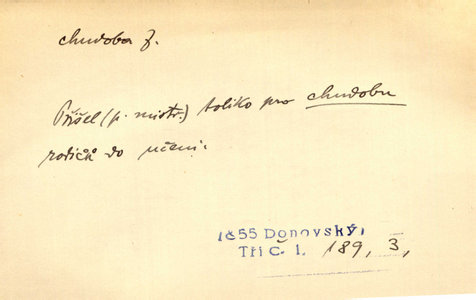 chudoba ž.
Přišel (p. mistr.) toliko pro chudobu
rodičů do učení.
1855 Donovský,
Tři č. 1. 189, 3,